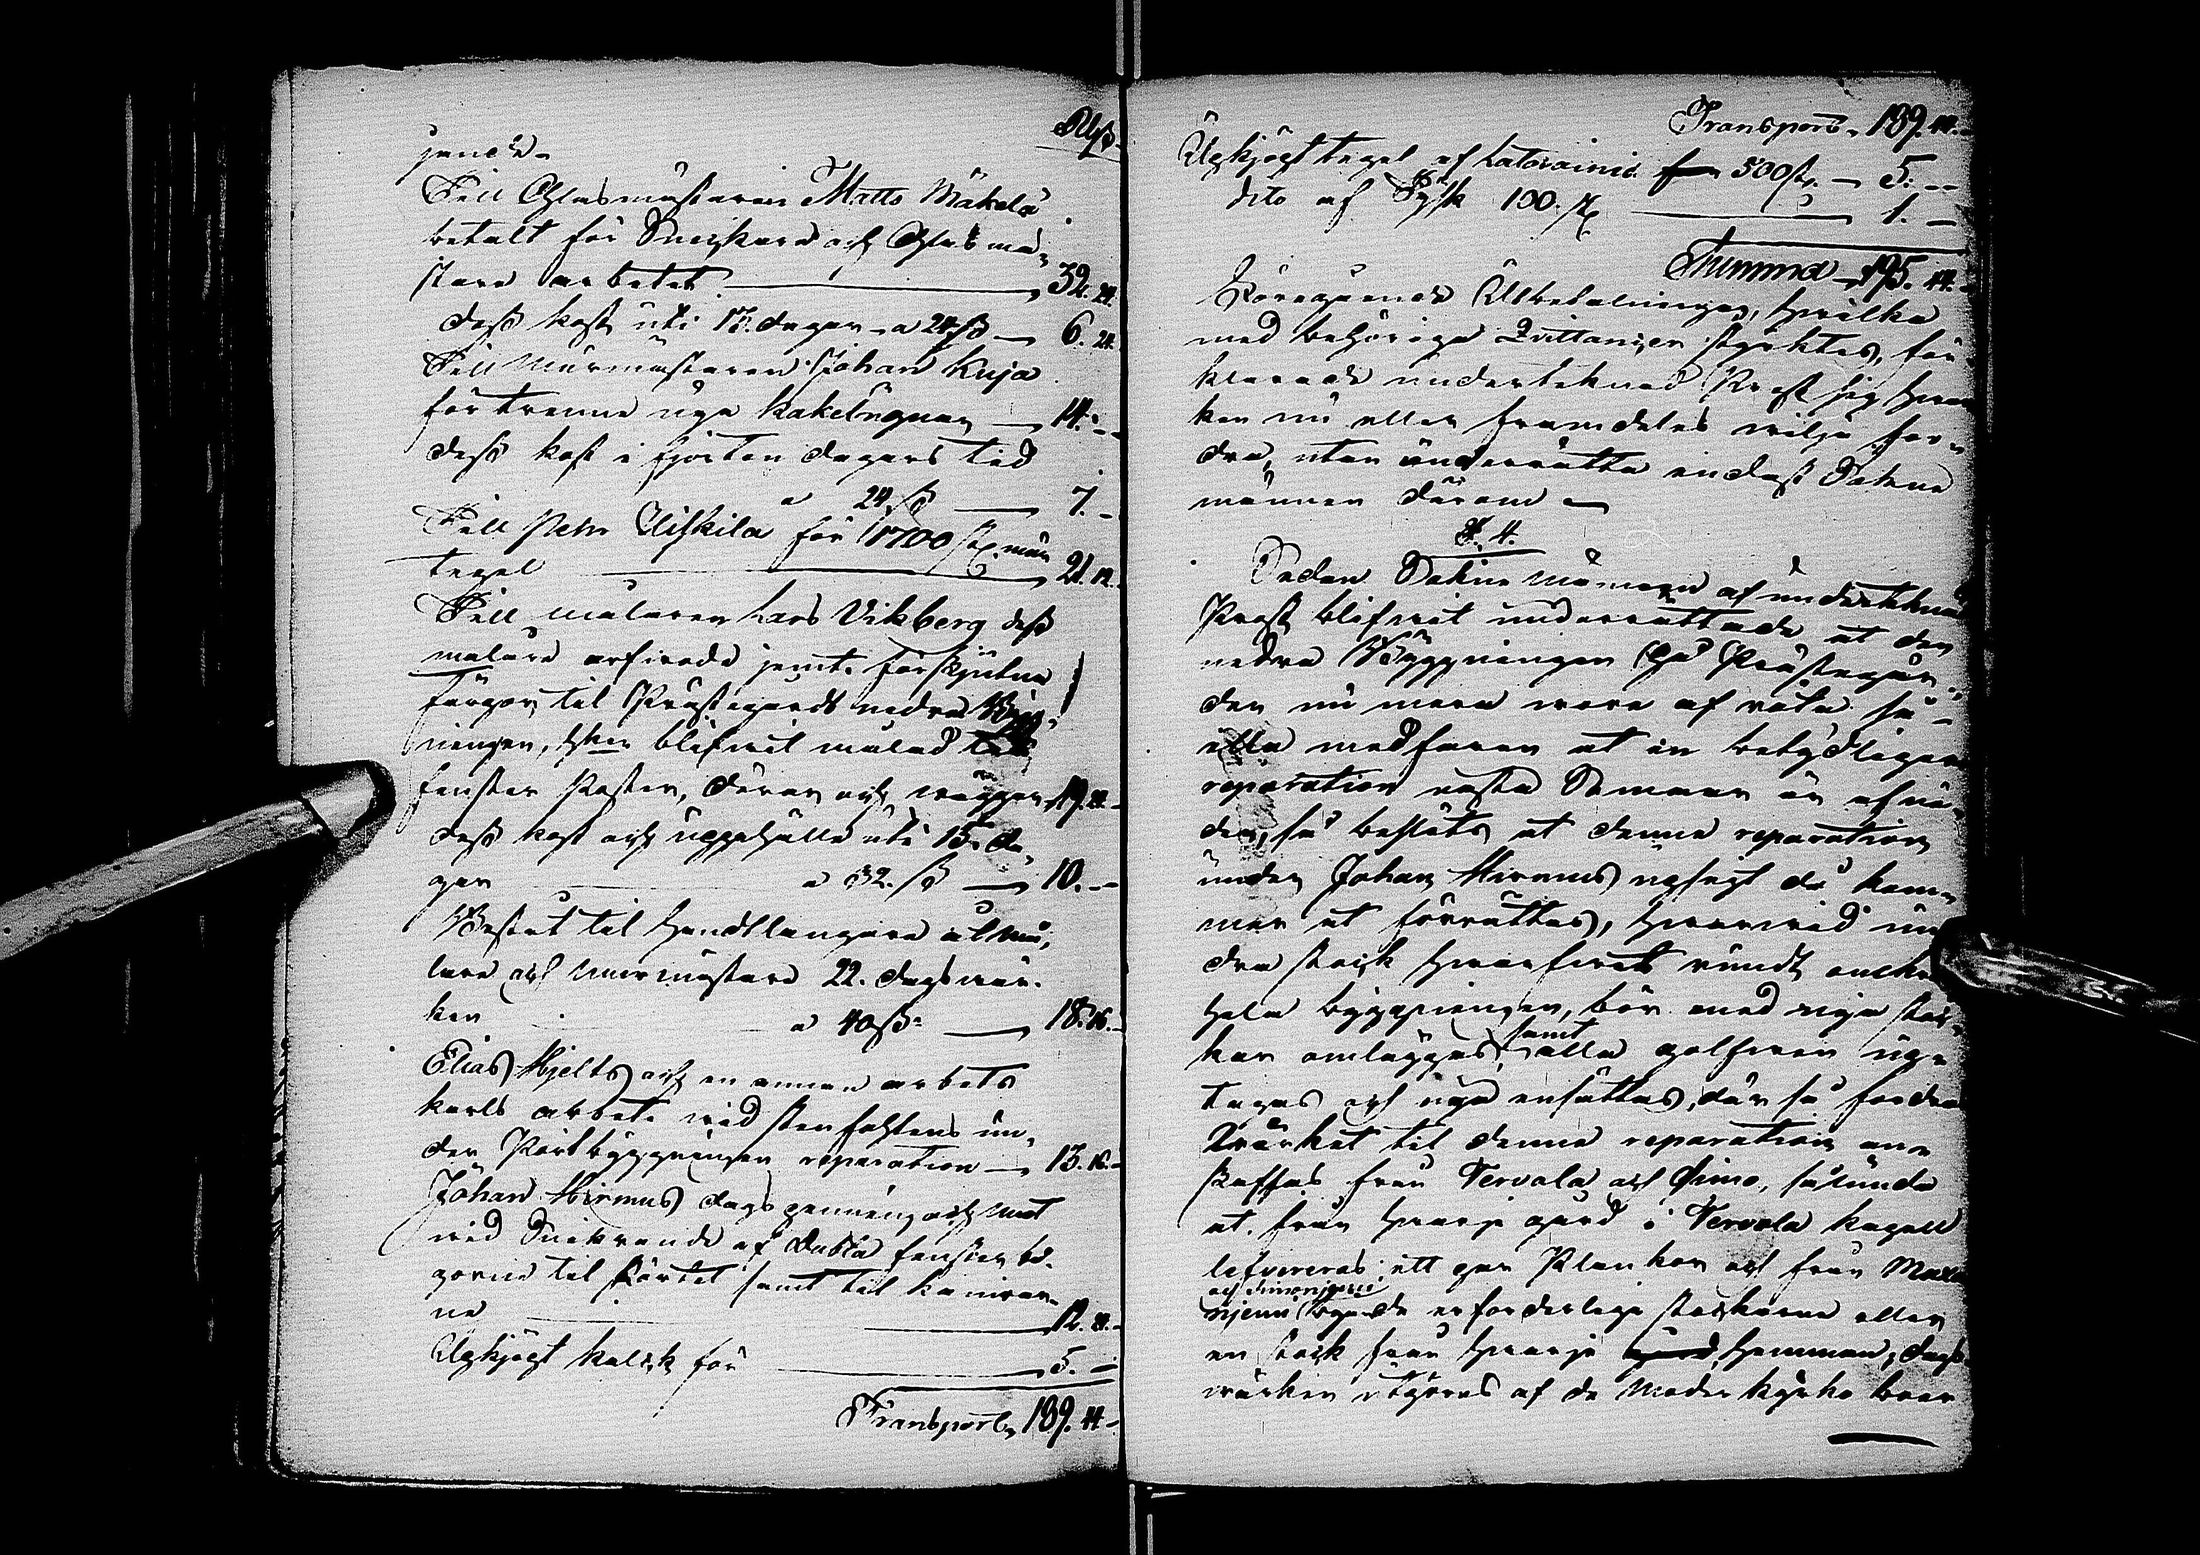 jande
Till Glasmästaren Matts Mäkelä
betalt för Snickare och Glasmä-
stare arbetet 32. 24.
dess kost uti 13. dagar a 24 ß 6. 24.
Till Murmästaren Johan Kuja
för trenne nya Kakelugnar 14. -
dess kost i fjorton dagars tid
a 24 ß 7. -
Till Petr Uiskila för 1700 st. mur
tegel 21. 12.
Till målaren Lars Vikberg dess
målare arfvode jemte förskjutna
färgor til Prästegårds nedra Bygg-
ningen, hvar blifvit målad
fenster Poster, dörar och väggar 19.
dess kost och uppehälle uti 15. da-
gar a 32. ß 10. -
Bestått til handtlangare åt må-
lare och murmästare 22. dagsvär-
ken a 40 ß 18. 16.
Elias Hjelts och en annan arbets
karls arbete vid stenfotens un-
der Pörtbyggningen reparation 13. 16.
Johan Hirmus dagspenning och mat
vid Snickrande af dubla fenster bå-
gorne til Pörtet samt til kamrar-
ne 12.
Upkjöpt kalck för 5. -
Transport 189. 44.
Transport 189. 44.
Upkjöpt tegel af Latvainio 500 st. 5. -
dito af 100. st 1. -
Summa 195. 44.
Föregående Utbetalningar, hvilka
med behöriga Qvittancer styrktes, för-
klarade undertecknad Prost sig hvar-
ken nu eller framdeles vilja for-
dra, utan underrätta endast Sokne
männen därom
§. 4.
Sedan Sokne männen af undertecknad
Prost blifvit underrättade at den
nedra Byggningen på Prästegår-
den nu mera vore af röta så
illa medfaren at en betydligare
reparation nästa Sommar är af nö-
den, så beslöts at denne reparation
under Johan Hirmus upsigt då kom-
mer at förrättas, hvarvid un-
dra stock hvarfvet rundt omkring
hela byggningen, bör med nya stoc-
kar omlägges, samt alla golfven up-
tagas och nya ensättas, där så fordras
Virket til denne reparation an-
skaffas från Tervola och Simo, sålunda
at från hvarje gård i Tervola kapell
lefvereras ett par Plankor och från Maxa-
och Simonjemi
njemi byarde erforderliga stockarne eller
en stock från hvarje hemman, dags-
värken utgöras af de Moderkyrko boar